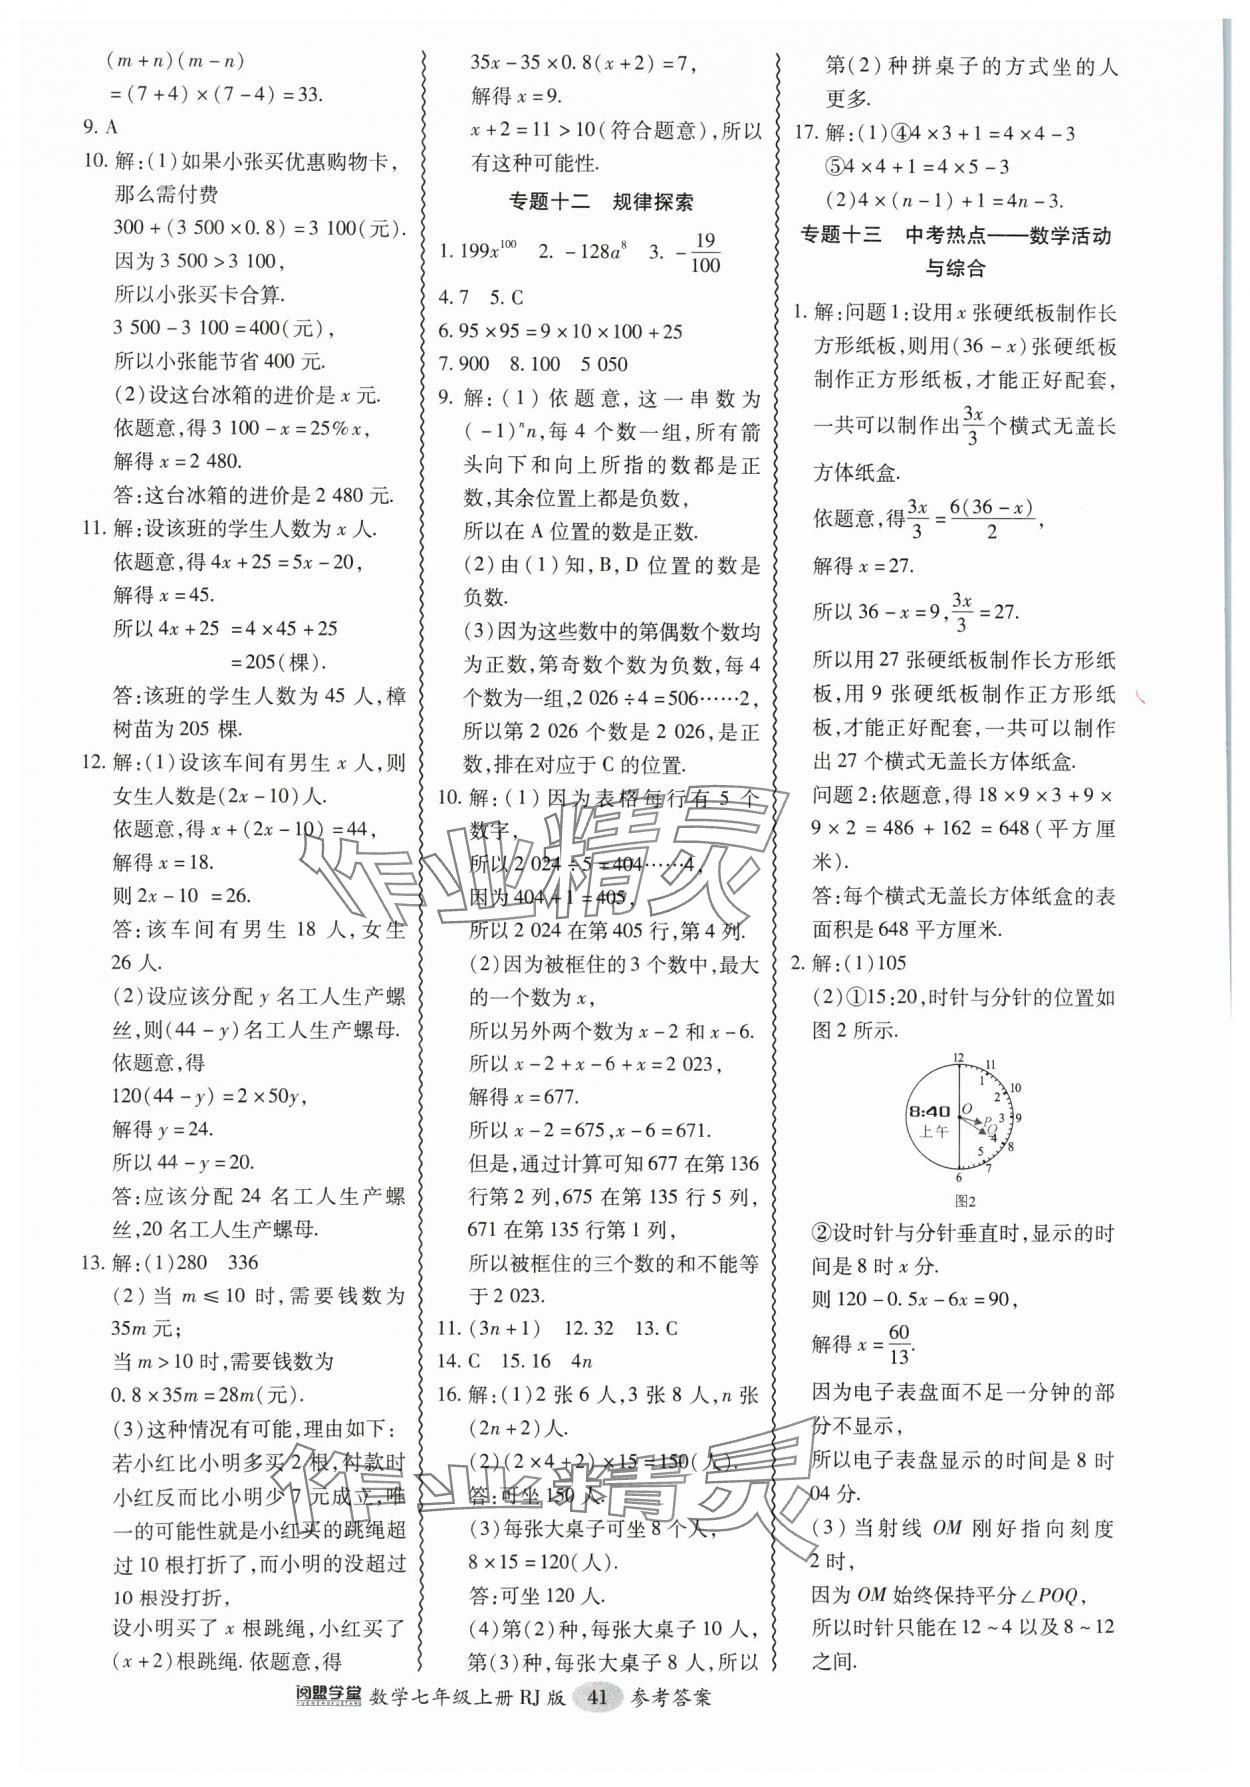 (m+n)(m-n)
=(7+4)×(7-4)=33.
9. A
10. 解:(1)如果小张买优惠购物卡,
那么需付费
300+(3 500×0.8)=3 100(元).
因为3 500>3 100,
所以小张买卡合算.
3 500-3 100=400(元),
所以小张能节省400元.
(2)设这台冰箱的进价是x元.
依题意,得3 100-x=25%x,
解得x=2 480.
答:这台冰箱的进价是2 480元.
11. 解:设该班的学生人数为x人.
依题意,得4x+25=5x-20,
解得x=45.
所以4x+25 =4×45+25
=205(棵).
答:该班的学生人数为45人,樟
树苗为205棵.
12. 解:(1)设该车间有男生x人,则
女生人数是(2x-10)人.
依题意,得x+(2x-10)=44,
解得x=18.
则2x-10 =26.
答:该车间有男生18人,女生
26人.
(2)设应该分配y名工人生产螺
丝,则(44-y)名工人生产螺母.
依题意,得
120(44-y)=2×50y,
解得y=24.
所以44-y=20.
答:应该分配24名工人生产螺
丝,20名工人生产螺母.
13. 解:(1)280 336
(2)当m≤10时,需要钱数为
35m元;
当m>10时,需要钱数为
0.8×35m=28m(元).
(3)这种情况有可能,理由如下:
若小红比小明多买2根,付款时
小红反而比小明少7元成立,唯
一的可能性就是小红买的跳绳超
过10根打折了,而小明的没超过
10根没打折,
设小明买了x根跳绳,小红买了
(x+2)根跳绳. 依题意,得
35x-35×0.8(x+2)=7,
解得x=9.
x+2=11>10(符合题意),所以
有这种可能性.
专题十二 规律探索
1. 199x^100 2. -128a^8 3. -19/100
4. 7 5. C
6. 95×95=9×10×100+25
7. 900 8. 100 5 050
9. 解:(1)依题意,这一串数为
(-1)^n n,每4个数一组,所有箭
头向下和向上所指的数都是正
数,其余位置上都是负数,
所以在A位置的数是正数.
(2)由(1)知,B,D位置的数是
负数.
(3)因为这些数中的第偶数个数均
为正数,第奇数个数为负数,每4
个数为一组,2 026÷4=506……2,
所以第2 026个数是2 026,是正
数,排在对应于C的位置.
10. 解:(1)因为表格每行有5个
数字,
所以2 024÷5=404……4,
因为404+1=405,
所以2 024在第405行,第4列.
(2)因为被框住的3个数中,最大
的一个数为x,
所以另外两个数为x-2和x-6.
所以x-2+x-6+x=2 023,
解得x=677.
所以x-2=675,x-6=671.
但是,通过计算可知677在第136
行第2列,675在第135行5列,
671在第135行第1列,
所以被框住的三个数的和不能等
于2 023.
11. (3n+1) 12. 32 13. C
14. C 15. 16 4n
16. 解:(1)2张6人,3张8人,n张
(2n+2)人.
(2)(2×4+2)×15=150(人).
答:可坐150人.
(3)每张大桌子可坐8个人,
8×15=120(人).
答:可坐120人.
(4)第(2)种,每张大桌子10人,
第(3)种,每张大桌子8人,所以
第(2)种拼桌子的方式坐的人
更多.
17. 解:(1)④4×3+1=4×4-3
⑤4×4+1=4×5-3
(2)4×(n-1)+1=4n-3.
专题十三 中考热点——数学活动
与综合
1. 解:问题1:设用x张硬纸板制作长
方形纸板,则用(36-x)张硬纸板
制作正方形纸板,才能正好配套,
一共可以制作出3x/3个横式无盖长
方体纸盒.
依题意,得3x/3=6(36-x)/2,
解得x=27.
所以36-x=9,3x/3=27.
所以用27张硬纸板制作长方形纸
板,用9张硬纸板制作正方形纸
板,才能正好配套,一共可以制作
出27个横式无盖长方体纸盒.
问题2:依题意,得18×9×3+9×
9×2=486+162=648(平方厘
米).
答:每个横式无盖长方体纸盒的表
面积是648平方厘米.
2. 解:(1)105
(2)①15:20,时针与分针的位置如
图2所示.
12
11
1
10
2
8:40 O P 3 9
上午 Q 4
8
5
7
6
图2
②设时针与分针垂直时,显示的时
间是8时x分.
则120-0.5x-6x=90,
解得x=60/13.
因为电子表盘面不足一分钟的部
分不显示,
所以电子表盘显示的时间是8时
04分.
(3)当射线OM刚好指向刻度
2时,
因为OM始终保持平分∠POQ,
所以时针只能在12~4以及8~12
之间.
阅盟学堂 数学七年级上册RJ版 41 参考答案
作业精灵
作业精灵